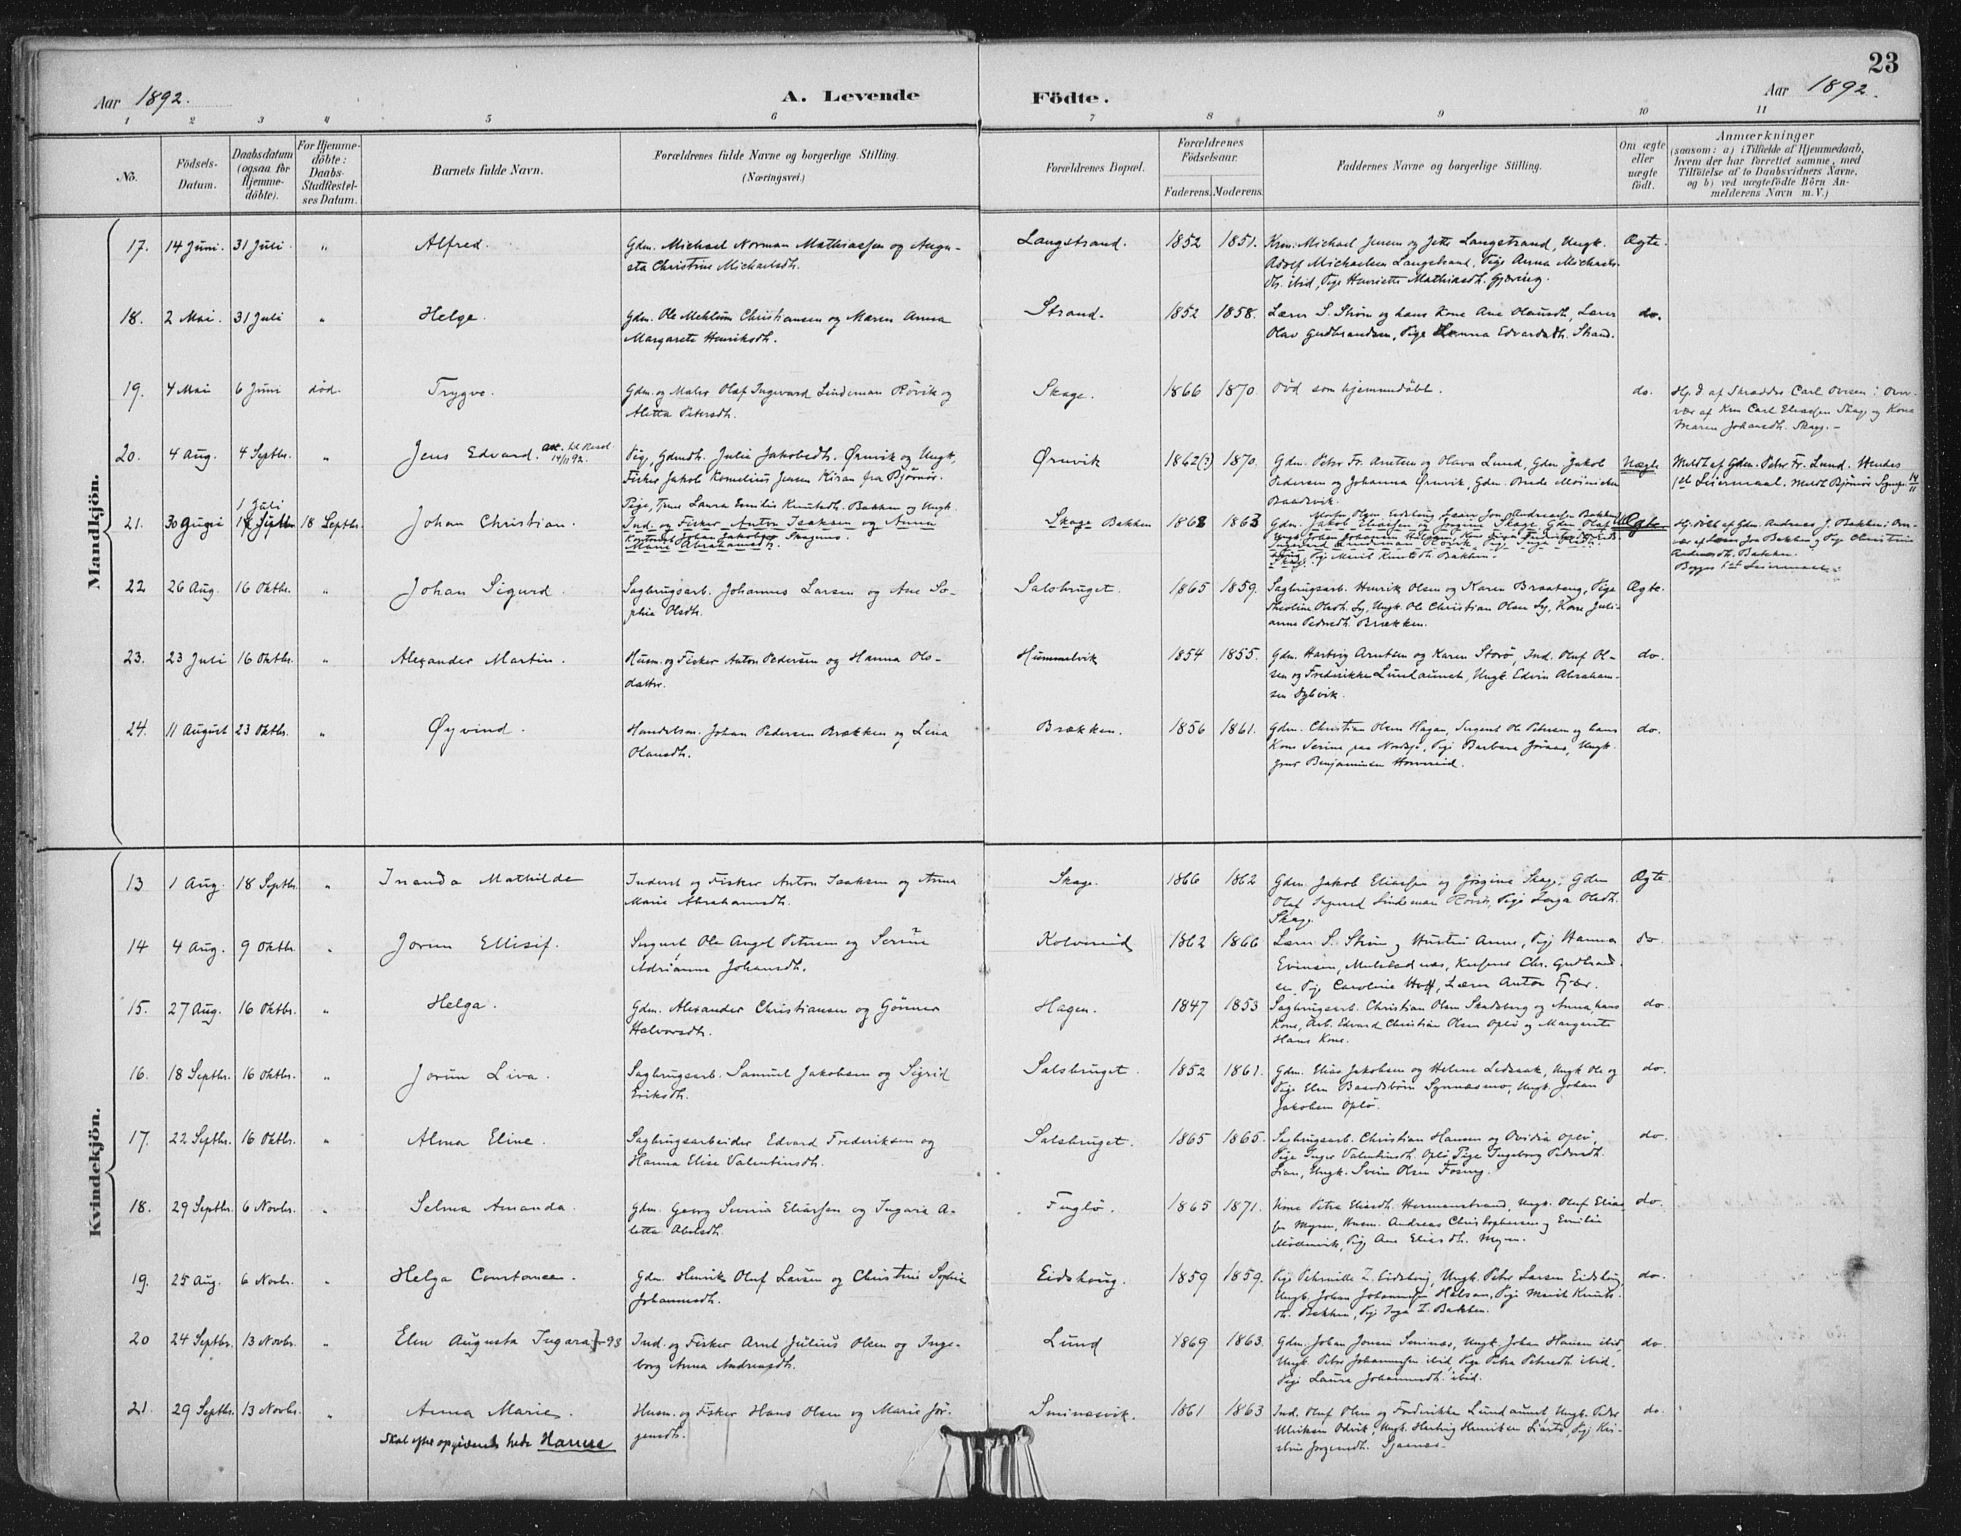 23
Aar 1892.
A. Levende Födte.
Aar 1892.
1 2 3 4 5 6 7 8 9 10 11
No.
Födsels-Datum.
Daabsdatum (ogsaa for Hjemmedöbte).
For Hjemmedöbte: Daabs-Stadfæstelses Datum.
Barnets fulde Navn.
Forældrenes fulde Navne og borgerlige Stilling. (Næringsvei.)
Forældrenes Bopæl.
Forældrenes Födselsaar.
Faderens. Moderens.
Faddernes Navne og borgerlige Stilling.
Om ægte eller uægte födt.
Anmærkninger
(saasom: a) i Tilfælde af Hjemmedaab,
hvem der har forrettet samme, med
Tilföielse af to Daabsvidners Navne,
og b) ved uægtefödte Börn Anmelderens Navn m.V.)
Mandkjön.
17. 14 Juni. 31 Juli " Alfred. Gdm. Michael Norman Mathiassen og Augusta Christine Michaelsdh. Langstrand. 1852 1851. Krm. Michael Jensen og Jette Langstrand, Ungk.
Adolf Michaelsen Langstrand, Pige Anna Michaelsdh. ibid, Pige Henriette Mathiasdh. Gjæring. Ægte.
18. 2 Mai. 31 Juli " Helge. Gdm. Ole Mehlum Christiansen og Maren Anna
Margarete Henriksdh. Strand. 1852 1858. Lærer S. Strøm og hans Kone Ane Olausdh, Lærer
Olav Gudbrandsen, Pige Hanna Edvardsdh. Strand. do.
19. 4 Mai 6 Juni død. Trygve. Gdm. og Maler Olaf Ingevard Lindeman Rörvik og
Aletta Petersdh. Skage. 1866 1870. Död som hjemmedöbt. do. Hj. d. af Skrædder Carl Ovesen i Overvær af Krm Carl Eliassen Skage og Kone
Maren Johansdh. Skage.-
20. 4 Aug. 4 Septbr. " Jens Edvard. 14/11 92. Pige, Gdmdh. Julie Jakobsdh. Ørnvik og Ungk,
Fisker Jakob Kornelius Jensen Kiran fra Bjørnør. Ørnvik 1862(?) 1870. Gdm. Peter Fr. Arntsen og Hava Lund, Gdm Jakob
Pedersen og Johanna Ørnvik, Gdm. Brede Meinichen
Baardvik. Uægte Meldt af Gdm. Peter Fr. Lund. Hendes
1st Leiermaal. Meldt Bjørnør Sgnpr. 14/11
21. 30 1 Juli 18 Septbr. Johan Christian. Pige, Tjene Laura Emilie Knutsdh. Bakken og Ungk.
Ind. og Fisker Anton Isaksen og Anna
Marie Abrahamsdh. Skage Bakken 1868 1863 Gdm. Jakob Eliassen og Jørgine Skage, Gdm Olaf Ægte. Hj. döbt af Gdm. Andreas J. Bakken i Overvær af Lærer Jon Bakken og Pige Christine
Andreasdh. Bakken.
Begges 1st Leiermaal.
22 26 Aug. 16 Oktbr. " Johan Sigurd. Sagbrugsarb. Johannes Larsen og Ane Sophie Olsdh. Salsbruget. 1865 1859. Sagbrugsarb. Henrik Olsen og Karen Braateng, Pige
Theoline Olsdh. Sy, Ungk. Ole Christian Olsen Sy, Kone Julianne Pedersdh. Brækken. Ægte.
23. 23 Juli 16 Oktbr. " Alexander Martin. Husm. og Fisker Anton Pedersen og Hanna Olsdatter. Hummelvik 1854 1855. Gdm. Hartvig Arntsen og Karen Storø, Ind. Oluf Olsen og Frederikke Lundaunet, Ungk. Edvin Abrahamsen Dybvik. do.
24. 11 August 23 Oktbr. " Øyvind. Handelsm. Johan Pedersen Brækken og Lina
Olausdh. Brækken. 1856 1861. Gdm. Christian Olsen Hagan, Sergent Ole Petersen og hans
Kone Serine, Pige Barbara, Ungk.
Benjaminsen. do.
Kvindekjön.
13 1 Aug. 18 Septbr. " Inanda Mathilde Inderst og Fisker Anton Isaksen og Anna
Marie Abrahamsdh. Skage. 1866 1862 Gdm. Jakob Eliassen og Jörgine Skage, Gdm
Olaf Lindeman, Pige Olsdh.
Skage. Ægte
14 4 Aug. 9 Oktbr. " Jorun Ellisif. Sergent Ole Angel Petersen og Serine
Adrianna Johansdh. Kolvereid 1862 1866 Lærer S. Strøm og Hustru Anne, Pige Hanna
Evensen, Chr. Gudbrandsen, Pige Caroline Hoff, Lærer Anton Fjær. do
15. 27 Aug. 16 Oktbr. " Helga. Gdm. Alexander Christiansen og Gönner
Halvorsdh. Hagen. 1847 1853 Sagbrugsarb. Christian Olsen Skadsberg og Anna, hans
Kone, Arb. Edvard Christian Olsen Oplö og Margarete
Hans Kone. do
16. 18 Septbr. 16 Oktbr. " Jorun Liva. Sagbrugsarb. Samuel Jakobsen og Sigrid
Eriksdh. Salsbruget. 1852 1861. Gdm. Elias Jakobsen og Helene Ledsaak, Ungk Ole og
Pige Elen, Ungk. Johan
Jakobsen Oplö. do.
17. 22 Septbr. 16 Oktbr. " Alma Eline. Sagbrugsarbeider Edvard Frederiksen og
Hanna Elise Valentinsdh. Salsbruget. 1865 1865. Sagbrugsarb. Christian Hansen og Ovidia Oplö,
Pige Inger Valentinsdh. Oplö, Pige Ingeborg Pedersdh.
Lian, Ungk. Svein Olsen. do.
18. 29 Septbr. 6 Novbr. " Selma Amanda. Gdm. Georg Severin Eliassen og Ingarie Aletta Abelsdh. Fuglø. 1865 1871. Kone Petra Eliasdh. Hermanstrand, Ungk. Oluf Eliassen Myren, Husm. Andreas Christophersen og Emilie
Pige Ane Eliasdh. Myren. do.
19. 25 Aug. 6 Novbr. " Helga Constance. Gdm. Henrik Oluf Larsen og Christine Sophie
Johannesdh. Eidshaug. 1859 1859. Pige Pehrnille L. Eidshaug, Ungk. Peter Larsen Eidshaug,
Ungk. Johan Johannessen Halsan, Pige Marit Knutsdh. Bakken, Pige Inga L. Bakken. do.
20 24 Septbr. 13 Novbr. " Elen Augusta Ingara }-93 Ind. og Fisker Arnt Julius Olsen og Ingeborg Anna Andreasdh. Lund 1869 1863. Gdm. Johan Jonsen Seminas, Ungk Johan Hansen ibid,
Ungk. Peter Johannessen ibid, Pige Petra Petersdh ibid,
Pige Laura Johannesdh. ibid. do.
21. 29 Septbr. 13 Novbr. " Anna Marie. Husm. og Fisker Hans Olsen og Marie Jörgensdh. Sminæsvik. 1861 1863 Ind. Oluf Olsen og Frederikke Lundaunet, Ungk. Peder
Ulriksen, Ungk. Hartvig Henriksen, Pige Kristine Jörgensdh. do.
Skal efter opgivende hede Hanna